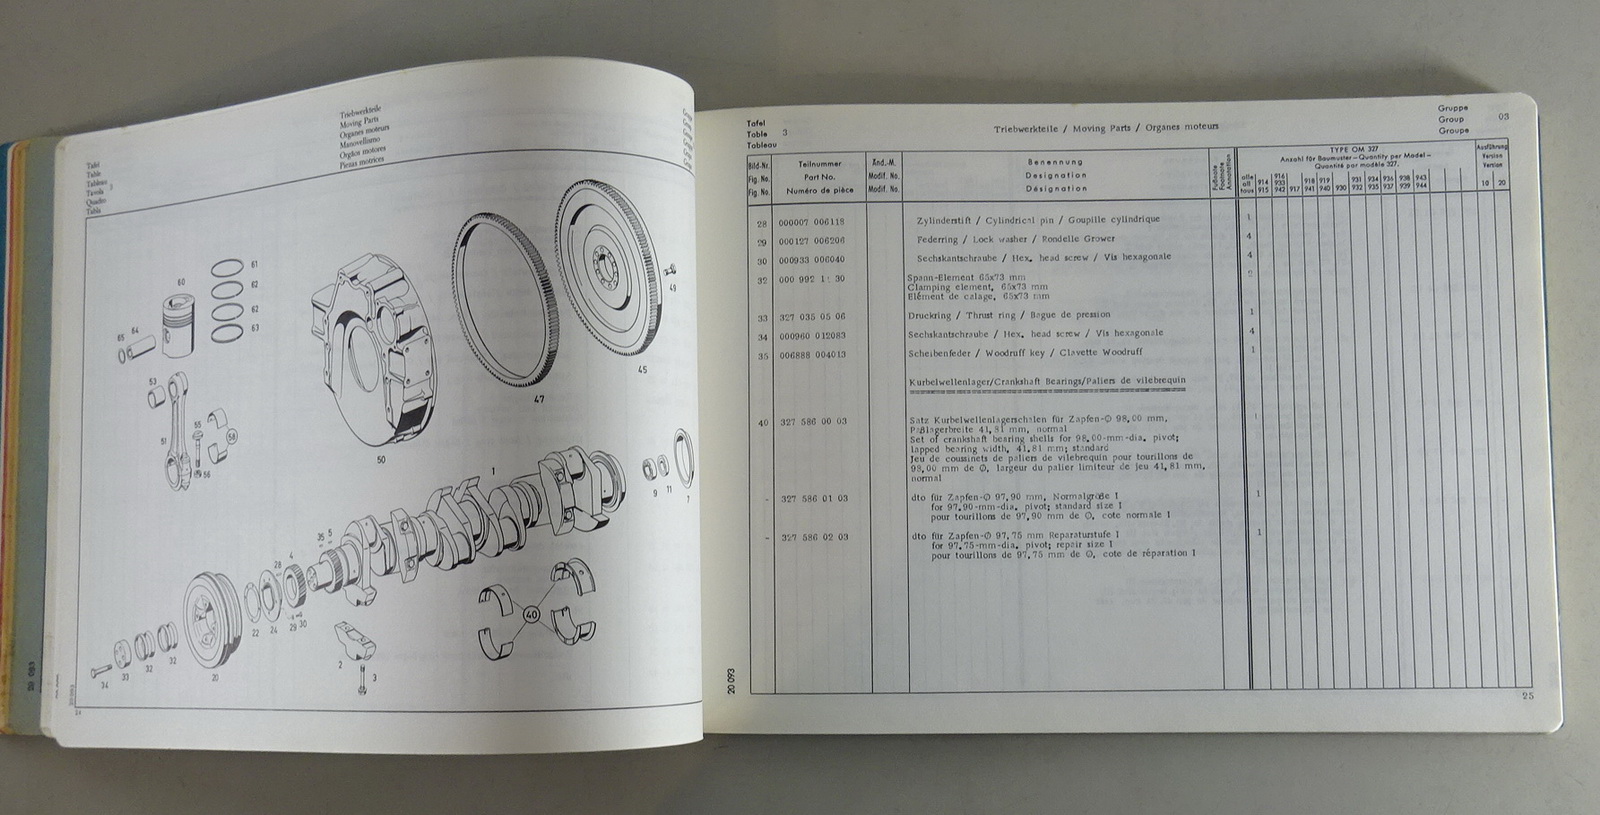 Triebwerkteile
Moving Parts
Organes moteurs
Manovellismo
Orgãos motores
Piezas motrices
Tafel
Table
Tableau
Tavola 3
Quadro
Tabla
60
61
62
62
63
65 64
53
51
55
58
56
50
47
45
49
1
9
11
7
35
5
4
28
22
24
29 30
20
32
32
33
34
2
3
40
20 093
Tafel
Table 3
Tableau
Triebwerkteile / Moving Parts / Organes moteurs
Gruppe
Group 03
Groupe
Bild-Nr.
Fig. No.
Fig. No.
Teilnummer
Part No.
Numéro de pièce
Änd.-M.
Modif. No.
Modif. No.
Benennung
Designation
Désignation
Fußnote
Footnote
Annotation
TYPE OM 327
Anzahl für Baumuster – Quantity per Model –
Quantité par modèle 327.
alle
all
tous
914
915
916
933
942
917
918
941
919
940
930
931
932
934
935
936
937
938
939
943
944
Ausführung
Version
Version
10 20
28 000007 006118 Zylinderstift / Cylindrical pin / Goupille cylindrique 1
29 000127 006206 Federring / Lock washer / Rondelle Grower 4
30 000933 006040 Sechskantschraube / Hex. head screw / Vis hexagonale 4
32 000 992 30 Spann-Element 65x73 mm 2
Clamping element, 65x73 mm
Elément de calage, 65x73 mm
33 327 035 05 06 Druckring / Thrust ring / Bague de pression 1
34 000960 012083 Sechskantschraube / Hex. head screw / Vis hexagonale 4
35 006888 004013 Scheibenfeder / Woodruff key / Clavette Woodruff 1
Kurbelwellenlager/Crankshaft Bearings/Paliers de vilebrequin
40 327 586 00 03 Satz Kurbelwellenlagerschalen für Zapfen-∅ 98,00 mm, 1
Paßlagerbreite 41,81 mm, normal
Set of crankshaft bearing shells for 98.00-mm-dia. pivot;
lapped bearing width, 41.81 mm; standard
Jeu de coussinets de paliers de vilebrequin pour tourillons de
98,00 mm de ∅, largeur du palier limiteur de jeu 41,81 mm,
normal
- 327 586 01 03 dto für Zapfen-∅ 97,90 mm, Normalgröße 1 1
for 97.90-mm-dia. pivot; standard size 1
pour tourillons de 97,90 mm de ∅, cote normale 1
- 327 586 02 03 dto für Zapfen-∅ 97,75 mm Reparaturstufe 1 1
for 97.75-mm-dia. pivot; repair size 1
pour tourillons de 97,75 mm de ∅, cote de réparation 1
20 093
25